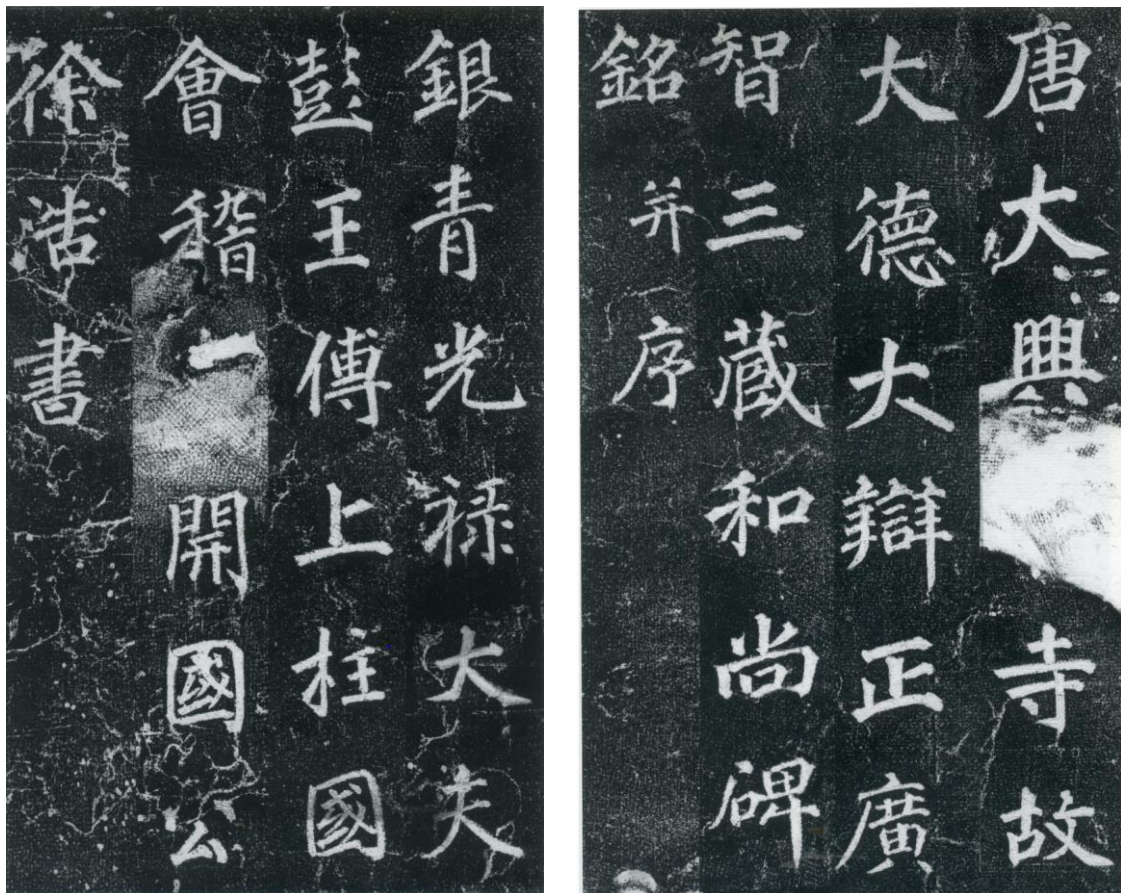 唐大興寺故
大德大辯正廣
智三藏和尚碑
銘并序
銀青光禄大夫
彭王傅上柱國
會稽開國公
徐浩書